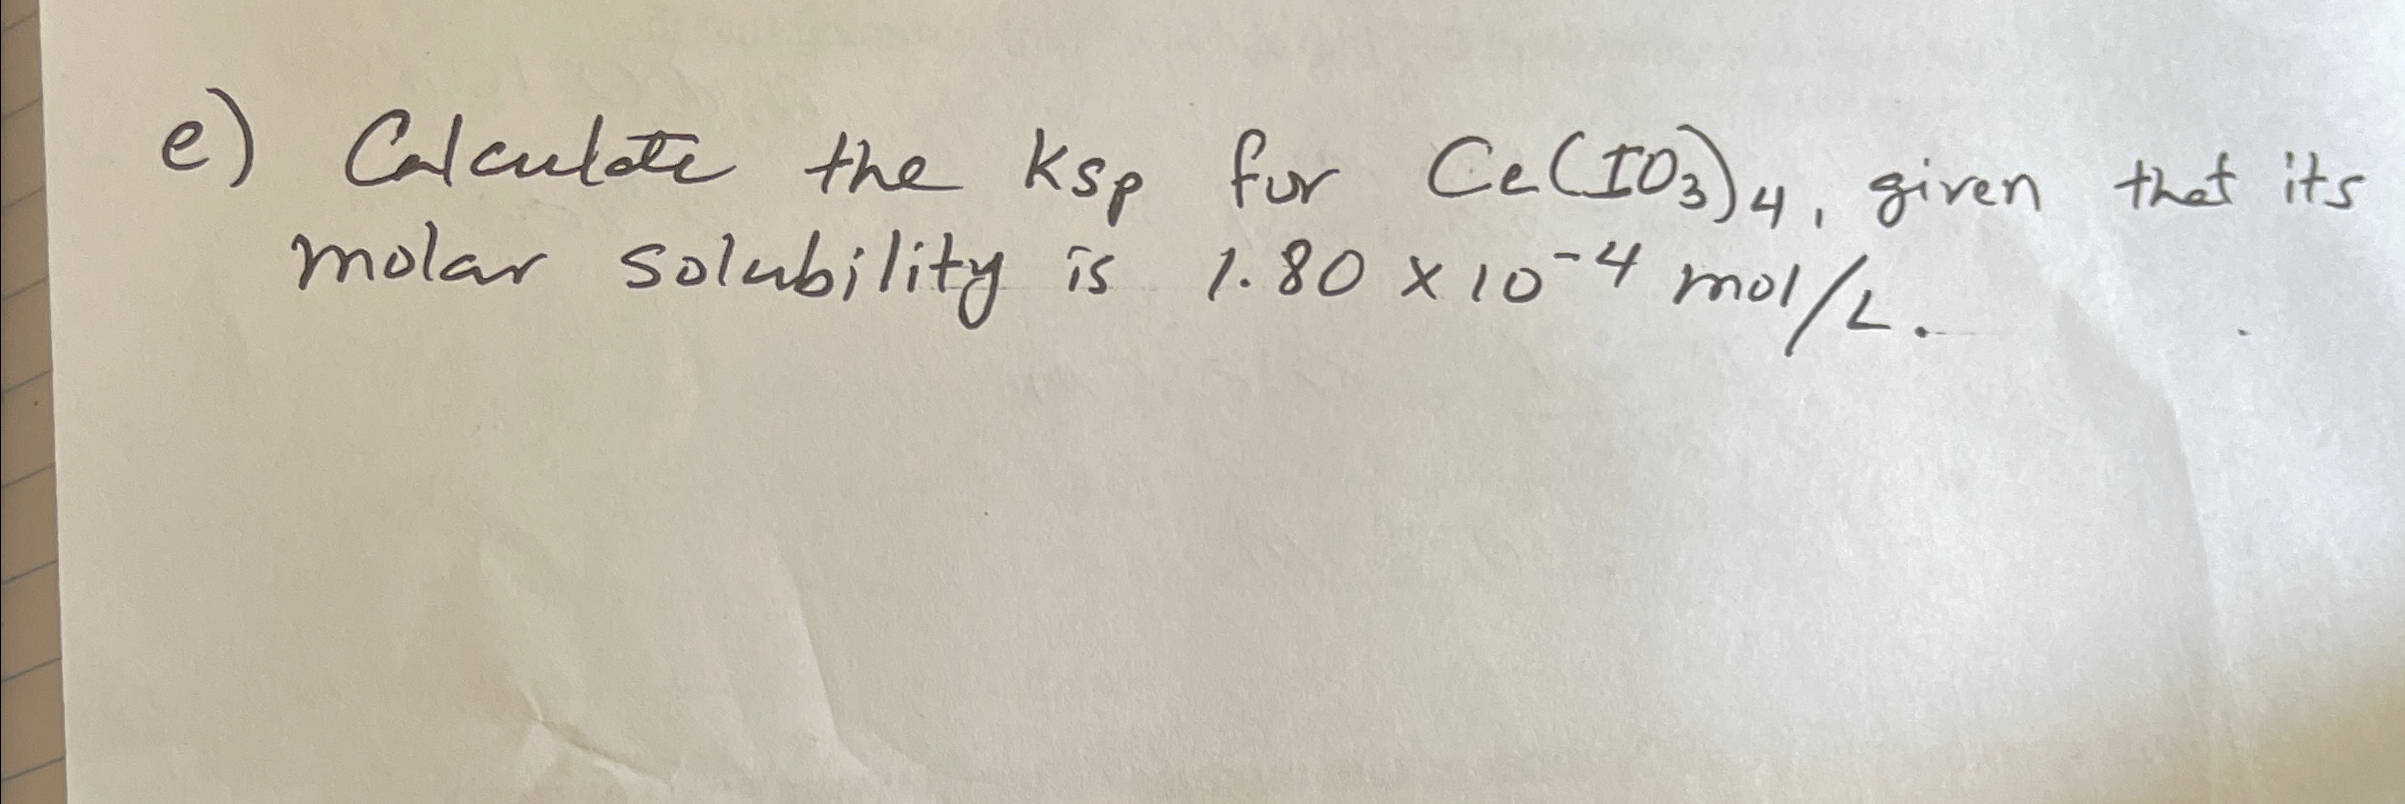 e) Calculate the Ksp for Ce(IO₃)₄, given that its
molar solubility is 1.80 x 10⁻⁴ mol/L.